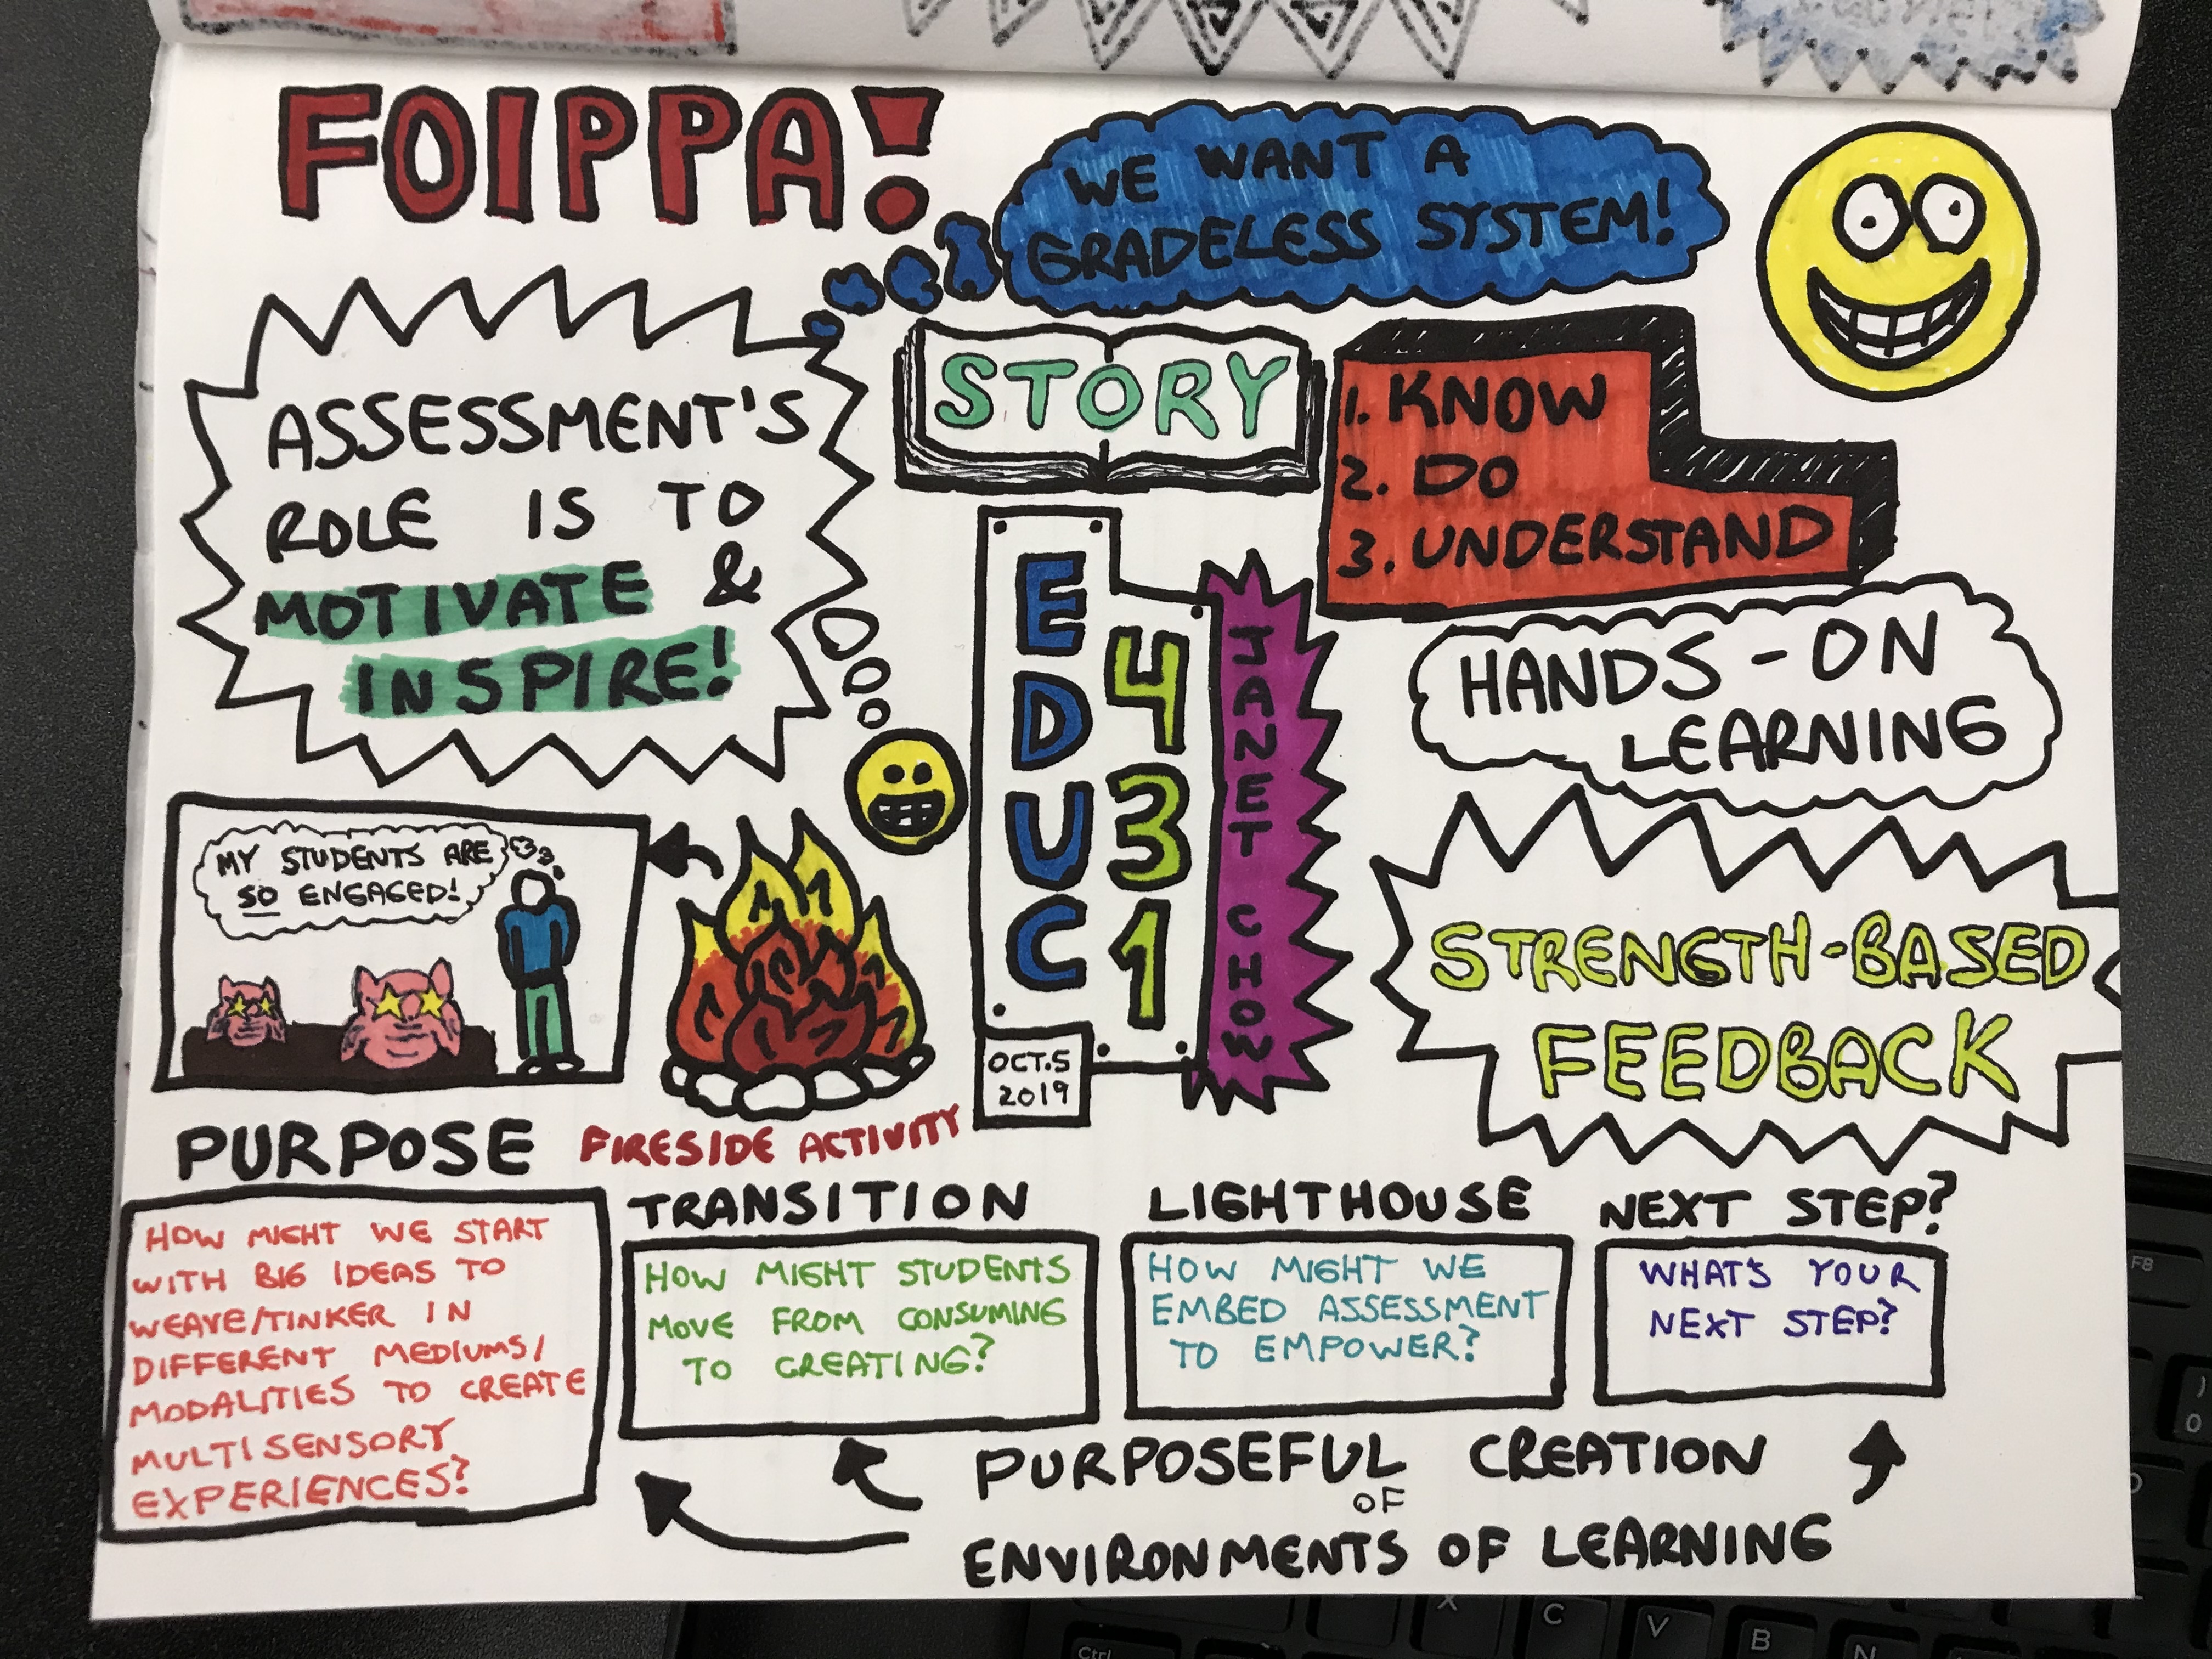 FOIPPA!
WE WANT A
GRADELESS SYSTEM!
ASSESSMENT'S
ROLE IS TO
MOTIVATE &
INSPIRE!
STORY
1. KNOW
2. DO
3. UNDERSTAND
EDUC
431
JANET CHOW
OCT.5
2019
HANDS-ON
LEARNING
STRENGTH-BASED
FEEDBACK
MY STUDENTS ARE
SO ENGAGED!
FIRESIDE ACTIVITY
PURPOSE
HOW MIGHT WE START
WITH BIG IDEAS TO
WEAVE/TINKER IN
DIFFERENT MEDIUMS/
MODALITIES TO CREATE
MULTISENSORY
EXPERIENCES?
TRANSITION
HOW MIGHT STUDENTS
MOVE FROM CONSUMING
TO CREATING?
LIGHTHOUSE
HOW MIGHT WE
EMBED ASSESSMENT
TO EMPOWER?
NEXT STEP?
WHAT'S YOUR
NEXT STEP?
PURPOSEFUL CREATION
OF
ENVIRONMENTS OF LEARNING
F8
)
0
X
C
V
B
N
Ctrl